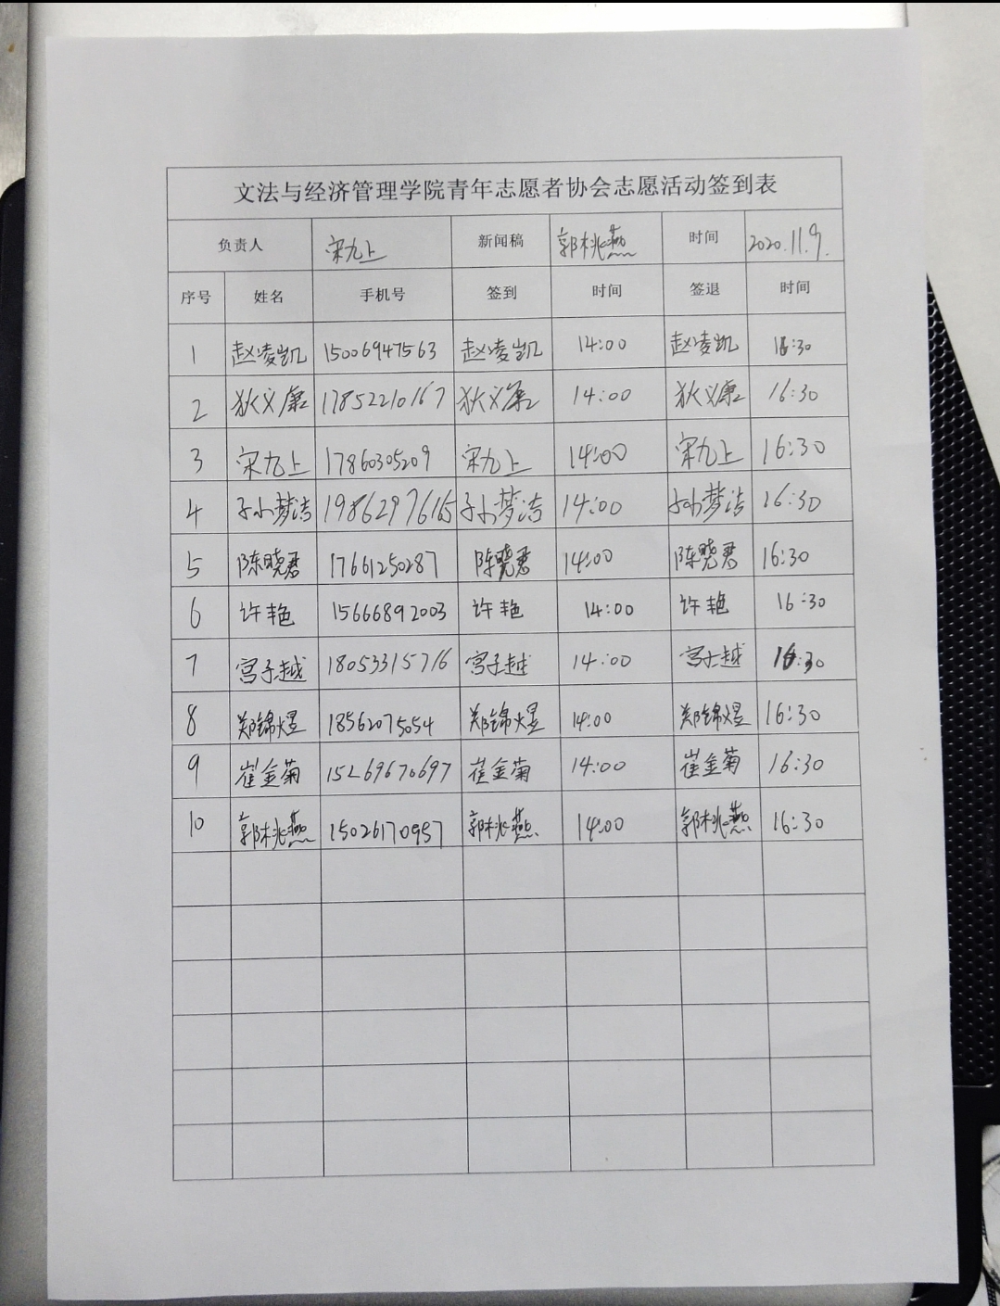 文法与经济管理学院青年志愿者协会志愿活动签到表
负责人 宋九上 新闻稿 郭桃燕 时间 2020.11.9.
序号 姓名 手机号 签到 时间 签退 时间
1 赵凌凯 15006947563 赵凌凯 14:00 赵凌凯 16:30
2 狄义康 17852210167 狄义康 14:00 狄义康 16:30
3 宋九上 17860305209 宋九上 14:00 宋九上 16:30
4 孙梦洁 19862976165 孙梦洁 14:00 孙梦洁 16:30
5 陈晓君 17661250287 陈晓君 14:00 陈晓君 16:30
6 许艳 15666892003 许艳 14:00 许艳 16:30
7 宫子越 18053315716 宫子越 14:00 宫子越 16:30
8 郑锦煜 18562075054 郑锦煜 14:00 郑锦煜 16:30
9 崔金菊 15269670697 崔金菊 14:00 崔金菊 16:30
10 郭桃燕 15026170957 郭桃燕 14:00 郭桃燕 16:30